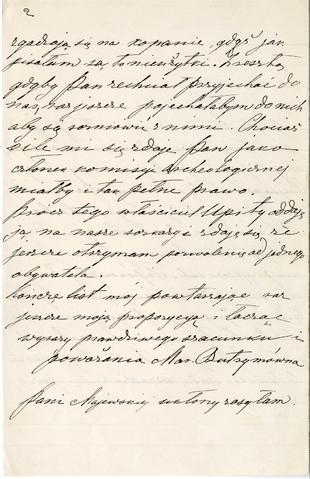 2
zgadzają się na kopanie, gdyż jak
pisałam są to nieużytki. Zresztą
gdyby Pan zechciał przyjechać do
nas, raz jeszcze pojechałabym do nich
aby się rozmówić z nimi. Chociaż
o ile mi się zdaje Pan jako
członek komisyi archeologicznej
miałby i tak pełne prawo.
Prócz tego właściciel Upity oddaje
ją na nasze rozkazy i zdaje się że
jeszcze otrzymam pozwolenie od jednego
obywatela.
Kończę list mój powtarzając raz
jeszcze moją propozycyą i łącząc
wyrazy prawdziwego szacunku i
poważania Mar. Butrymówna
Pani Majewskiej ukłony zasyłam.